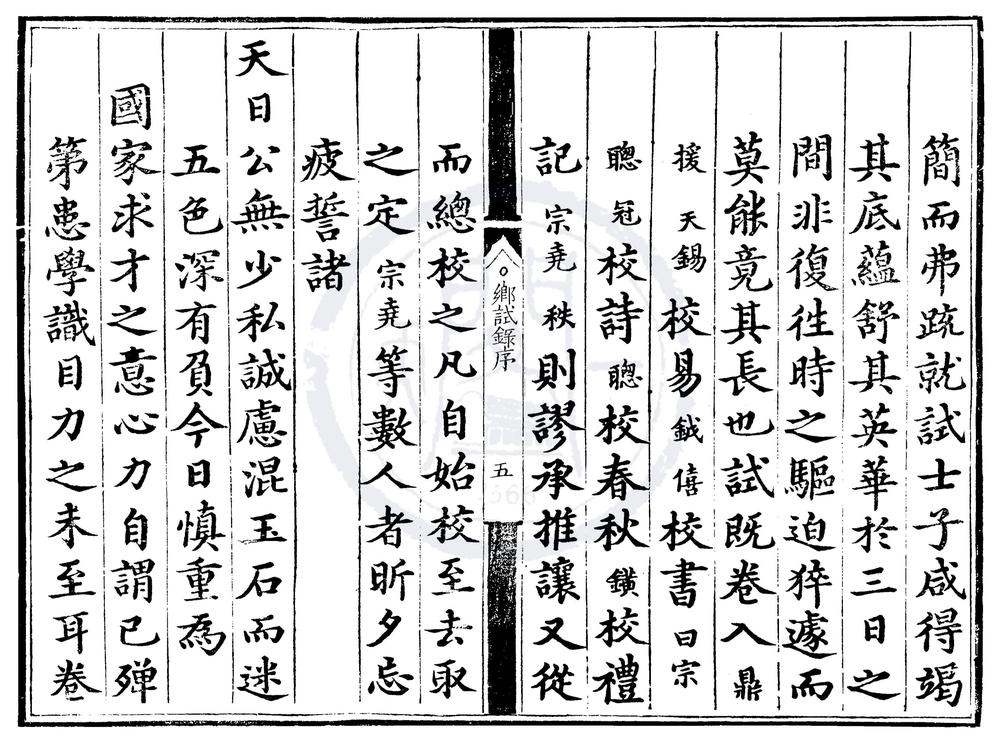 簡而弗疏就試士子咸得竭
其底蘊舒其英華於三日之
間非復徃時之驅迫猝遽而
莫能竟其長也試既卷入鼎
援天錫校易鉞僖校書曰宗
聰冠校詩聰校春秋鐄校禮
記宗堯秩則謬承推讓又從
鄉試錄序
五
而總校之凡自始校至去取
之定宗堯等數人者昕夕忘
疲誓諸
天日公無少私誠慮混玉石而迷
五色深有負今日慎重為
國家求才之意心力自謂已殫
第患學識目力之未至耳卷